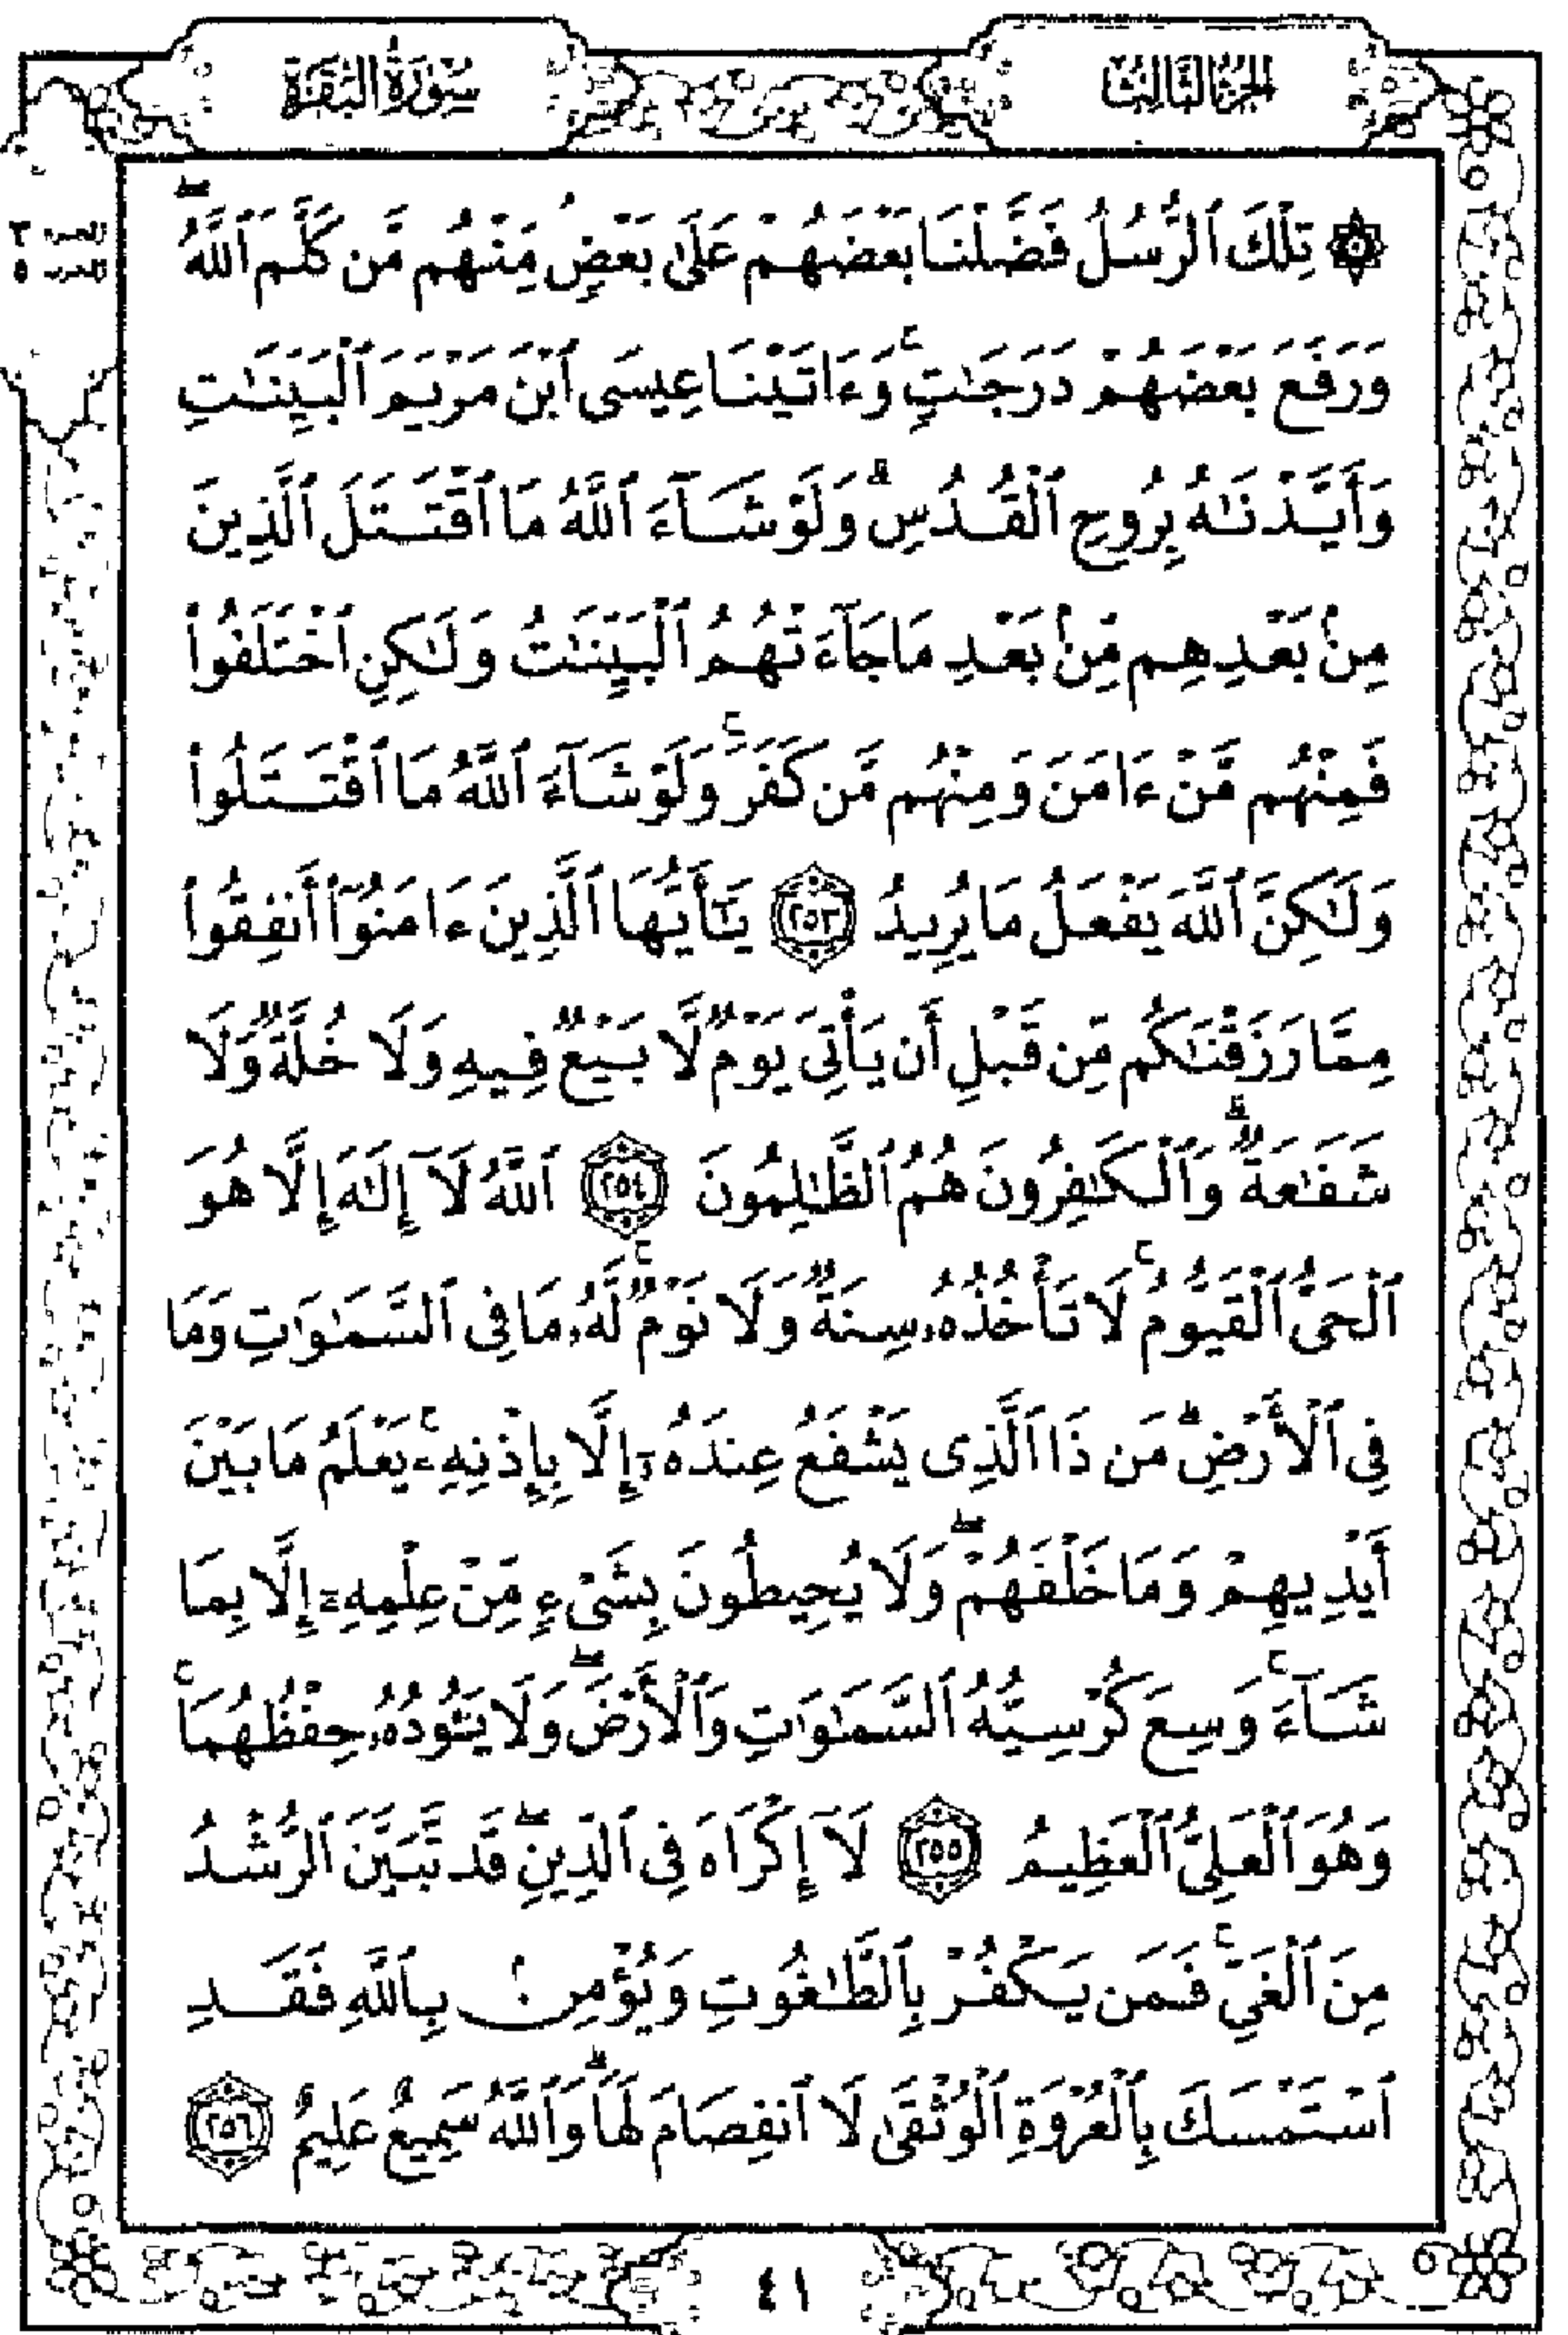 الجزء الثالث
سورة البقرة
۞ تِلْكَ ٱلرُّسُلُ فَضَّلْنَا بَعْضَهُمْ عَلَىٰ بَعْضٍ مِّنْهُم مَّن كَلَّمَ ٱللَّهُ ۖ
وَرَفَعَ بَعْضَهُمْ دَرَجَٰتٍ ۚ وَءَاتَيْنَا عِيسَى ٱبْنَ مَرْيَمَ ٱلْبَيِّنَٰتِ
وَأَيَّدْنَٰهُ بِرُوحِ ٱلْقُدُسِ ۗ وَلَوْ شَآءَ ٱللَّهُ مَا ٱقْتَتَلَ ٱلَّذِينَ
مِنۢ بَعْدِهِم مِّنۢ بَعْدِ مَا جَآءَتْهُمُ ٱلْبَيِّنَٰتُ وَلَٰكِنِ ٱخْتَلَفُوا۟
فَمِنْهُم مَّنْ ءَامَنَ وَمِنْهُم مَّن كَفَرَ ۚ وَلَوْ شَآءَ ٱللَّهُ مَا ٱقْتَتَلُوا۟
وَلَٰكِنَّ ٱللَّهَ يَفْعَلُ مَا يُرِيدُ ٢٥٣ يَٰٓأَيُّهَا ٱلَّذِينَ ءَامَنُوٓا۟ أَنفِقُوا۟
مِمَّا رَزَقْنَٰكُم مِّن قَبْلِ أَن يَأْتِىَ يَوْمٌ لَّا بَيْعٌ فِيهِ وَلَا خُلَّةٌ وَلَا
شَفَٰعَةٌ ۗ وَٱلْكَٰفِرُونَ هُمُ ٱلظَّٰلِمُونَ ٢٥٤ ٱللَّهُ لَآ إِلَٰهَ إِلَّا هُوَ
ٱلْحَىُّ ٱلْقَيُّومُ ۚ لَا تَأْخُذُهُۥ سِنَةٌ وَلَا نَوْمٌ ۚ لَّهُۥ مَا فِى ٱلسَّمَٰوَٰتِ وَمَا
فِى ٱلْأَرْضِ ۗ مَن ذَا ٱلَّذِى يَشْفَعُ عِندَهُۥٓ إِلَّا بِإِذْنِهِۦ ۚ يَعْلَمُ مَا بَيْنَ
أَيْدِيهِمْ وَمَا خَلْفَهُمْ ۖ وَلَا يُحِيطُونَ بِشَىْءٍ مِّنْ عِلْمِهِۦٓ إِلَّا بِمَا
شَآءَ ۚ وَسِعَ كُرْسِيُّهُ ٱلسَّمَٰوَٰتِ وَٱلْأَرْضَ ۖ وَلَا يَـُٔودُهُۥ حِفْظُهُمَا ۚ
وَهُوَ ٱلْعَلِىُّ ٱلْعَظِيمُ ٢٥٥ لَآ إِكْرَاهَ فِى ٱلدِّينِ ۖ قَد تَّبَيَّنَ ٱلرُّشْدُ
مِنَ ٱلْغَىِّ ۚ فَمَن يَكْفُرْ بِٱلطَّٰغُوتِ وَيُؤْمِنۢ بِٱللَّهِ فَقَدِ
ٱسْتَمْسَكَ بِٱلْعُرْوَةِ ٱلْوُثْقَىٰ لَا ٱنفِصَامَ لَهَا ۗ وَٱللَّهُ سَمِيعٌ عَلِيمٌ ٢٥٦
٤١